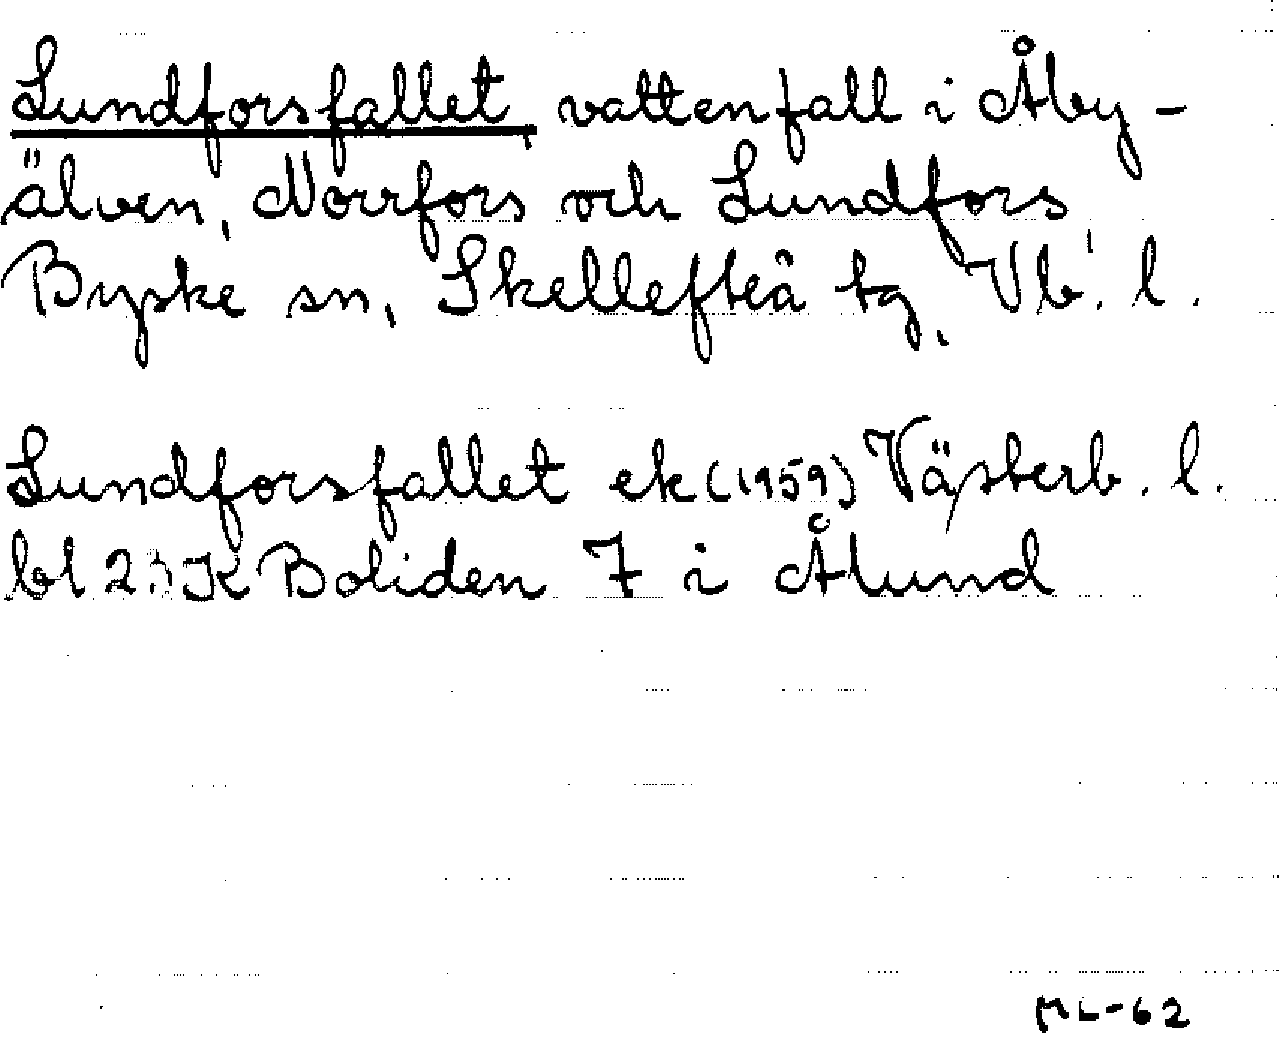 Lundforsfallet, vattenfall i Åby-
älven, Norrfors och Lundfors,
Byske sn, Skellefteå tg, Vb. l.
Lundforsfallet ek (1959) Västerb. l.
bl 23 K Boliden 7 i Ålund
ML-62